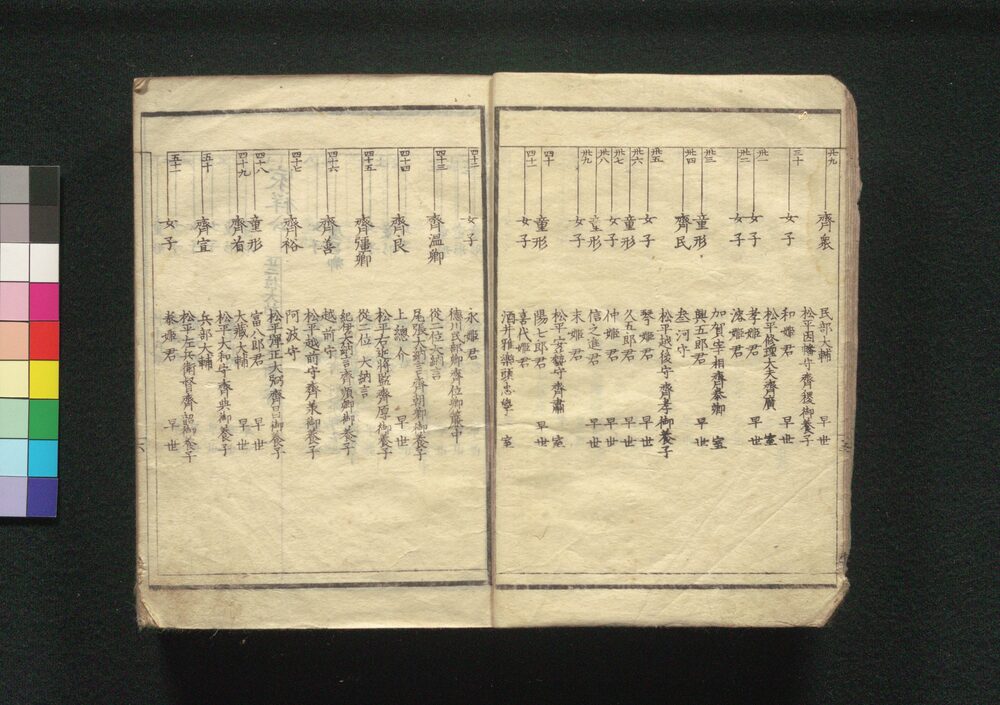 廿九 齊衆 民部大輔 早世
松平因幡守齊稷御養子
三十 女子 和姫君 早世
松平修理大夫齊廣 室
卅一 女子 孝姫君 早世
卅二 女子 溶姫君
加賀宰相齊泰卿 室
卅三 童形 興五郎君 早世
卅四 齊民 参河守
松平越後守齊孝御養子
卅五 女子 琴姫君 早世
卅六 童形 久五郎君 早世
卅七 女子 仲姫君 早世
卅八 童形 信之進君 早世
卅九 女子 末姫君
松平安藝守齊肅 室
四十 童形 陽七郎君 早世
四十一 女子 喜代姫君
酒井雅樂頭忠學 室
四十二 女子 永姫君
徳川民部卿齊位卿簾中
四十三 齊温卿 從二位大納言
尾張大納言齊朝卿御養子
四十四 齊良 上總介 早世
松平右近將監齊厚御養子
四十五 齊彊卿 從二位 大納言
紀伊大納言齊順卿御養子
四十六 齊善 越前守
松平越前守齊承御養子
四十七 齊裕 阿波守
松平彈正大弼齊昌御養子
四十八 童形 富八郎君 早世
四十九 齊省 大藏大輔 早世
松平大和守齊典御養子
五十 齊宣 兵部大輔
松平左兵衛督齊韶御養子
五十一 女子 泰姫君 早世